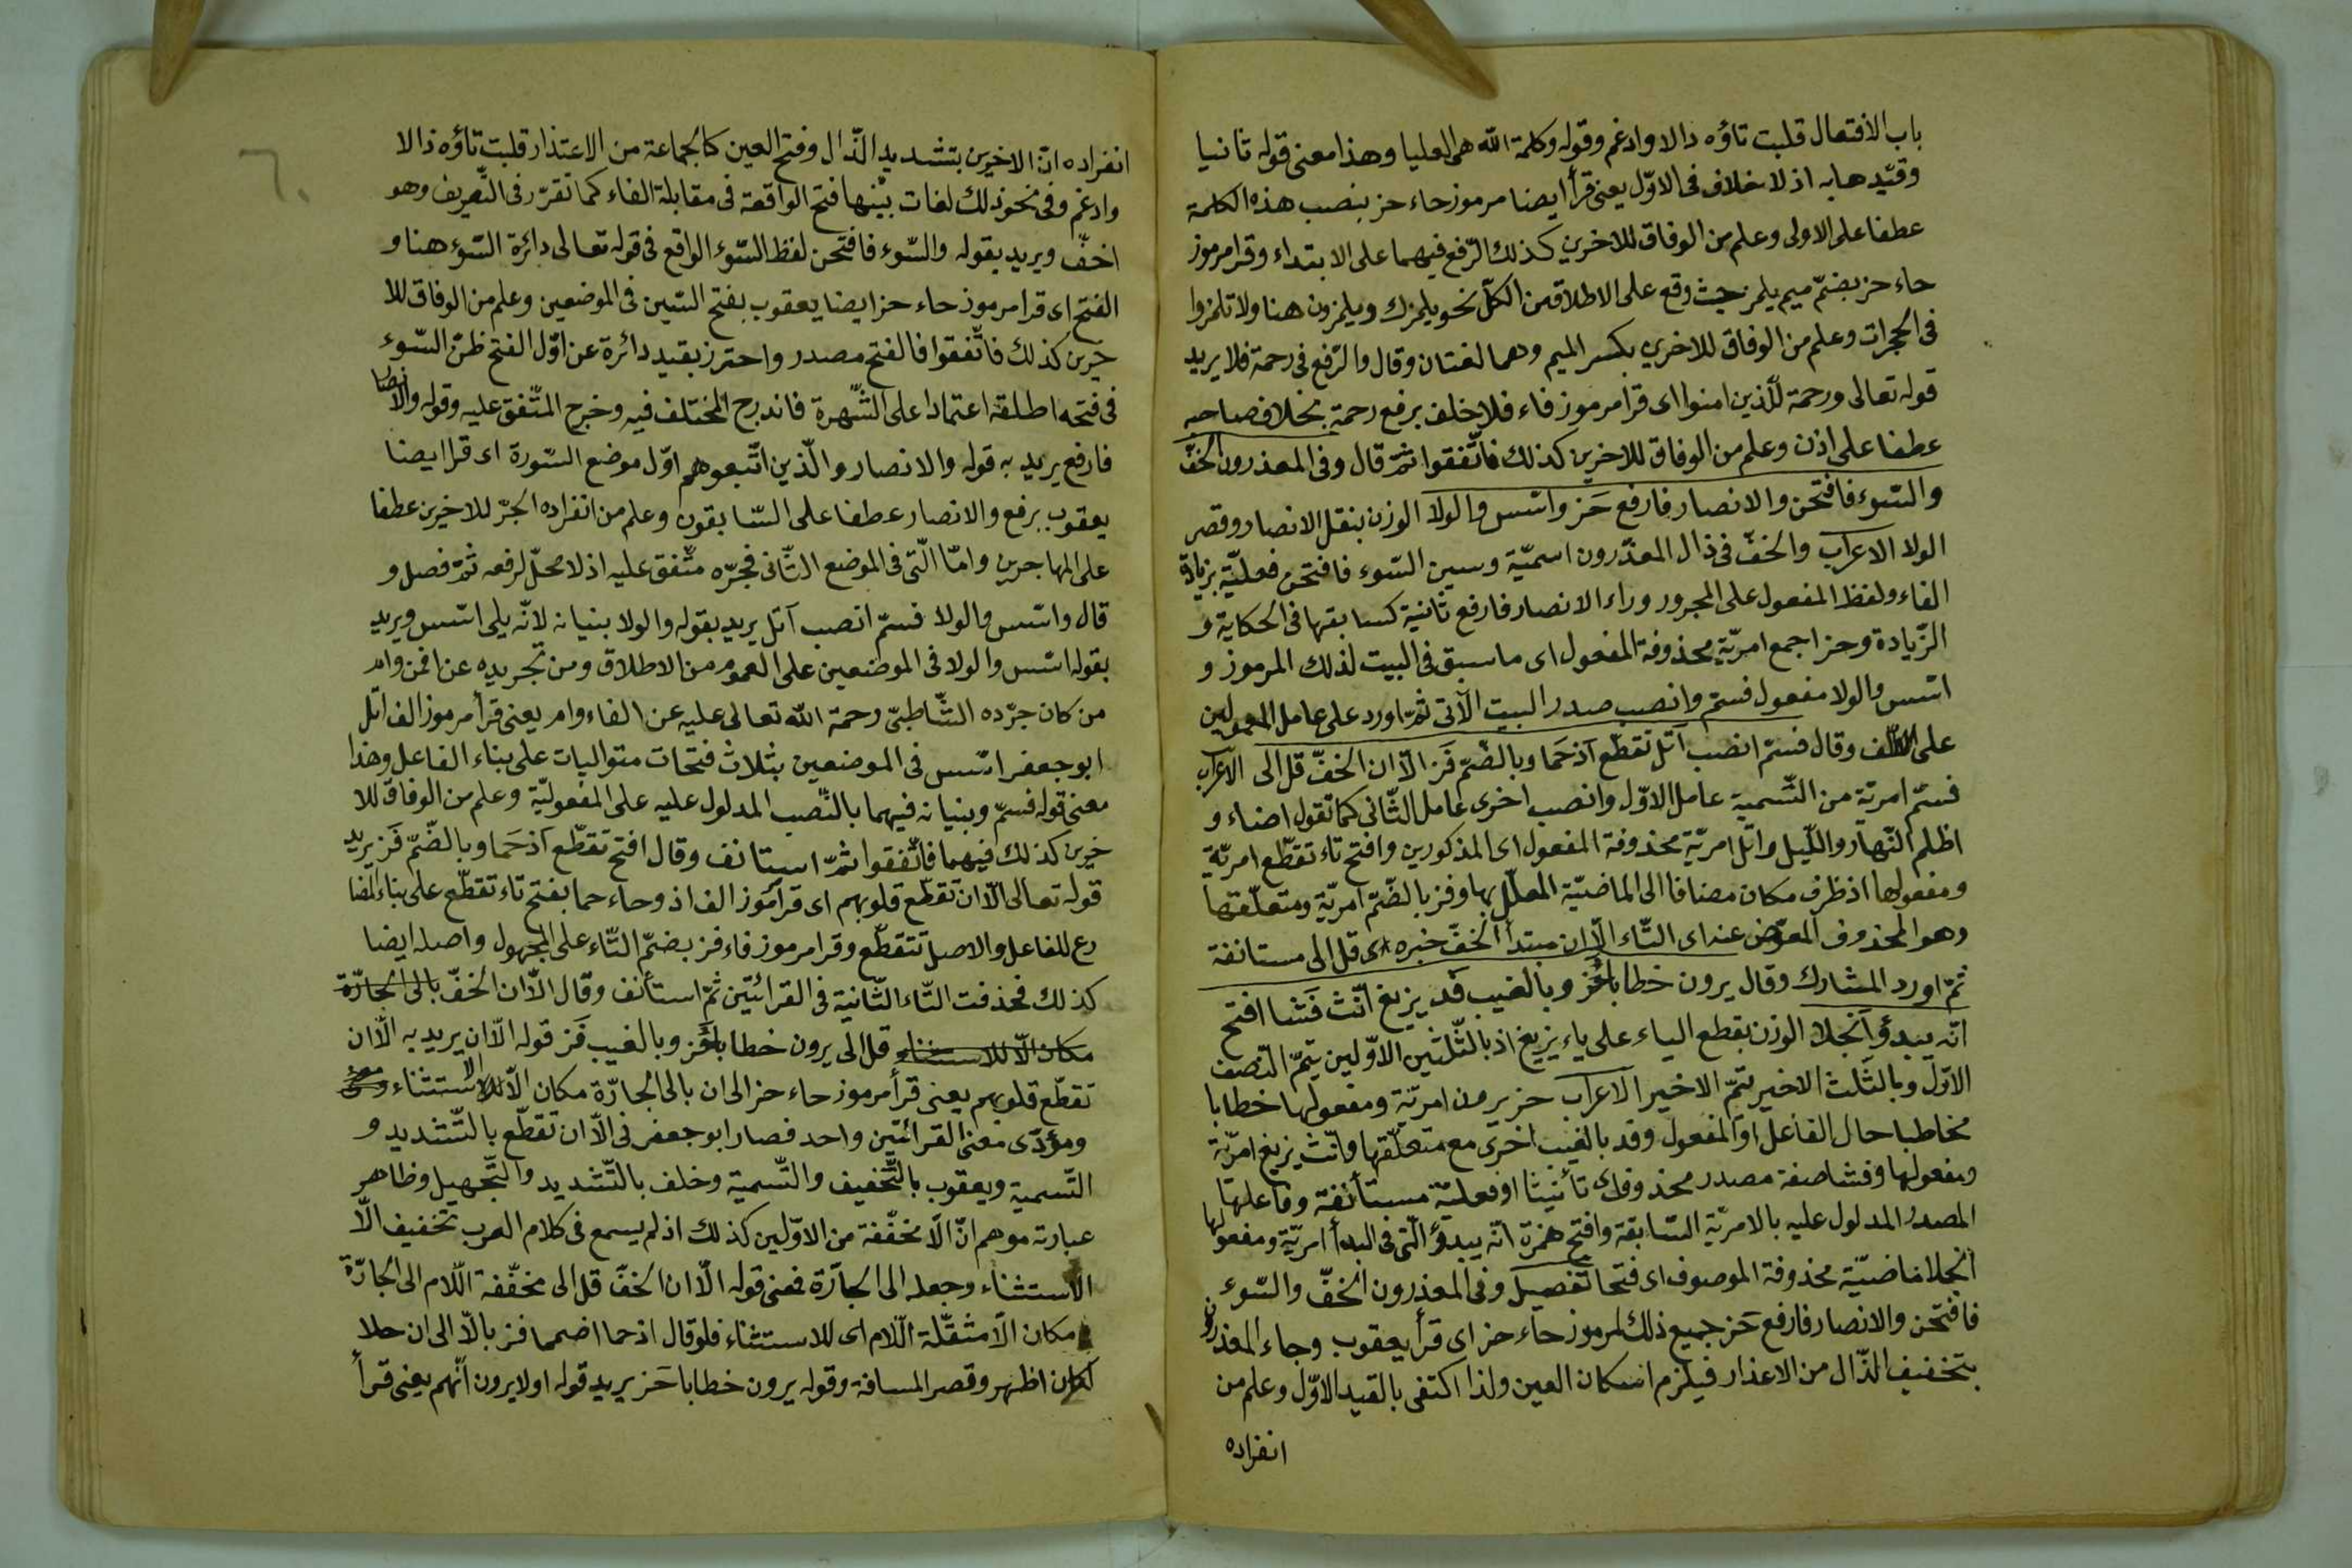 باب الافتعال قلبت تاؤه دالا وادغم وقوله وكلمة الله هى العليا وهذا معنى قوله ثانيا
وقيّدها به اذ لا خلاف فى الاوّل يعنى قرأ ايضا مرموز حاء حز بنصب هذه الكلمة
عطفا على الاولى وعلم من الوفاق للاخرين كذلك الرّفع فيهما على الابتداء وقرا مرموز
حاء حز بضمّ ميم يلمز حيث وقع على الاطلاق من الكلّ نحو يلمزك ويلمزون هنا ولا تلمزوا
فى الحجرات وعلم من الوفاق للاخرين بكسر الميم وهما لغتان وقال والرّفع فى رحمة فلا يريد
قوله تعالى ورحمة للّذين امنوا اى قرأ مرموز فاء فلا خلف برفع رحمة بخلاف صاحبه
عطفا على اذن وعلم من الوفاق للاخرين كذلك فاتّفقوا ثمّ قال وفى المعذرون الخفّ
والسّوء فافتحن والانصار فارفع حَز واسّس والولا الوزن بنقل الانصار وقصر
الولا الاعراب والخفّ فى ذال المعذّرون اسميّة وسين السّوء فافتحن فعليّة بزيادة
الفاء ولفظ المفعول على المجرور وراء الانصار فارفع ثانية كسابقها فى الحكاية و
الزّيادة وحز اجمع امريّة محذوفة المفعول اى ما سبق فى البيت لذلك المرموز و
اسّس والولا مفعول فسمّ وانصب صدر البيت الآتى ثمّ اورد على عامل المعمولين
على وقال فسمّ انصب اتل تقطّع اذ حَما وبالضّمّ فَز الّا ان الخفّ قل الى الاعراب
فسمّ امريّة من التّسمية عامل الاوّل وانصب اخرى عامل الثّانى كما تقول اضاء و
اظلم النّهار واللّيل واتل امريّة محذوفة المفعول اى المذكورين وافتح تاء تقطّع امريّة
ومفعولها اذ ظرف مكان مضافا الى الماضيّة المعلّل بها وفز بالضّمّ امريّة ومتعلّقتها
وهو المحذوف المعوّض عنه اى التّاء الّا ان مبتدأ الخفّ خبره اى قل الى مستانفة
ثمّ اورد المشارك وقال يرون خطابا حُز وبالغيب فد يزيغ انّث فَشا افتح
انّه يبدؤ انجلا الوزن بقطع الياء على ياء يزيغ اذ بالثّلثين الاوّلين يتمّ النّصف
الاوّل وبالثّلث الاخير يتمّ الاخير الاعراب حز يرون امريّة ومفعولها خطابا
مخاطبا حال الفاعل او المفعول وفد بالغيب اخرى مع متعلّقها وانّث يزيغ امريّة
ومفعولها وفشا صفة مصدر محذوف اى تأنيثا او فعليّة مستأنفة وفاعلها
المصدر المدلول عليه بالامريّة السّابقة وافتح همزة انّه يبدؤ الّتى فى البدأ امريّة ومفعولها
انجلا ماضيّة محذوفة الموصوف اى فتحا تفصيل وفى المعذرون الخفّ والسّوء
فافتحن والانصار فارفع حَز جميع ذلك لمرموز حاء حز اى قرأ يعقوب وجاء المعذرون
بتخفيف الذّال من الاعذار فيلزم اسكان العين ولذا اكتفى بالقيد الاوّل وعلم من
انفراده
٦٠
انفراده انّ الاخرين بتشديد الذّال وفتح العين كالجماعة من الاعتذار قلبت تاؤه ذالا
وادغم وفى نحو ذلك لغات بيّنها فتح الواقعة فى مقابلة الفاء كما تقرّر فى التّصريف وهو
اخفّ ويريد بقوله والسّوء فافتحن لفظ السّوء الواقع فى قوله تعالى دائرة السّوء هنا و
الفتح اى قرا مرموز حاء حز ايضا يعقوب بفتح السّين فى الموضعين وعلم من الوفاق للا
خرين كذلك فاتّفقوا فالفتح مصدر واحترز بقيد دائرة عن اوّل الفتح ظنّ السّوء
فى فتحه اطلقه اعتمادا على الشّهرة فاندرج المختلف فيه وخرج المتّفق عليه وقوله والانصار
فارفع يريد به قوله والانصار والّذين اتّبعوهم اوّل موضع السّورة اى قرا ايضا
يعقوب برفع والانصار عطفا على السّابقون وعلم من انفراده الجرّ للاخرين عطفا
على المهاجرين وامّا الّتى فى الموضع الثّانى فجرّه متّفق عليه اذ لا محلّ لرفعه ثمّ فصل و
قال واسّس والولا فسمّ انصب اتل يريد بقوله والولا بنيانه لانّه يلى اسّس ويريد
بقوله اسّس والولا فى الموضعين على العموم من الاطلاق ومن تجريده عن افمن وام
من كان جرّده الشّاطبىّ رحمة الله تعالى عليه عن الفاء وام يعنى قرأ مرموز الف اتل
ابو جعفر اسّس فى الموضعين بثلاث فتحات متواليات على بناء الفاعل وهذا
معنى قوله فسمّ وبنيانه فيهما بالنّصب المدلول عليه على المفعوليّة وعلم من الوفاق للا
خرين كذلك فيهما فاتّفقوا ثمّ استانف وقال افتح تقطّع اذ حَما وبالضّمّ فَز يريد
قوله تعالى الّا ان تقطّع قلوبهم اى قرأ مرموز الف اذ وحاء حما بفتح تاء تقطّع على بناء المضا
رع للفاعل والاصل تتقطّع وقرا مرموز فاء فز بضمّ التّاء على المجهول واصله ايضا
كذلك فحذفت التّاء الثّانية فى القرائتين ثمّ استأنف وقال الّا ان الخفّ بالى الجارّة
مكان الّا للاستثناء قل الى يرون خطابا حُز وبالغيب فَز قوله الّا ان يريد به الّا ان
تقطّع قلوبهم يعنى قرأ مرموز حاء حز الى ان بالى الجارّة مكان الّا الاستثناء
ومؤدّى معنى القرائتين واحد فصار ابو جعفر فى الّا ان تقطّع بالتّشديد و
التّسمية ويعقوب بالتّخفيف والتّسمية وخلف بالتّشديد والتّجهيل وظاهر
عبارته موهم انّ الّا مخفّفة من الاوّلين كذلك اذ لم يسمع فى كلام العرب تخفيف الّا
الاستثناء وجعله الى الجارّة فمعنى قوله الّا ان الخفّ قل الى مخفّفة اللّام الى الجارّة
مكان الّا مثقّلة اللّام اى للاستثناء فلو قال اذ حما اضمما فز بالّا الى ان حلا
لكان اظهر وقصر المسافة وقوله يرون خطابا حَز يريد قوله اولا يرون انّهم يعنى قرأ